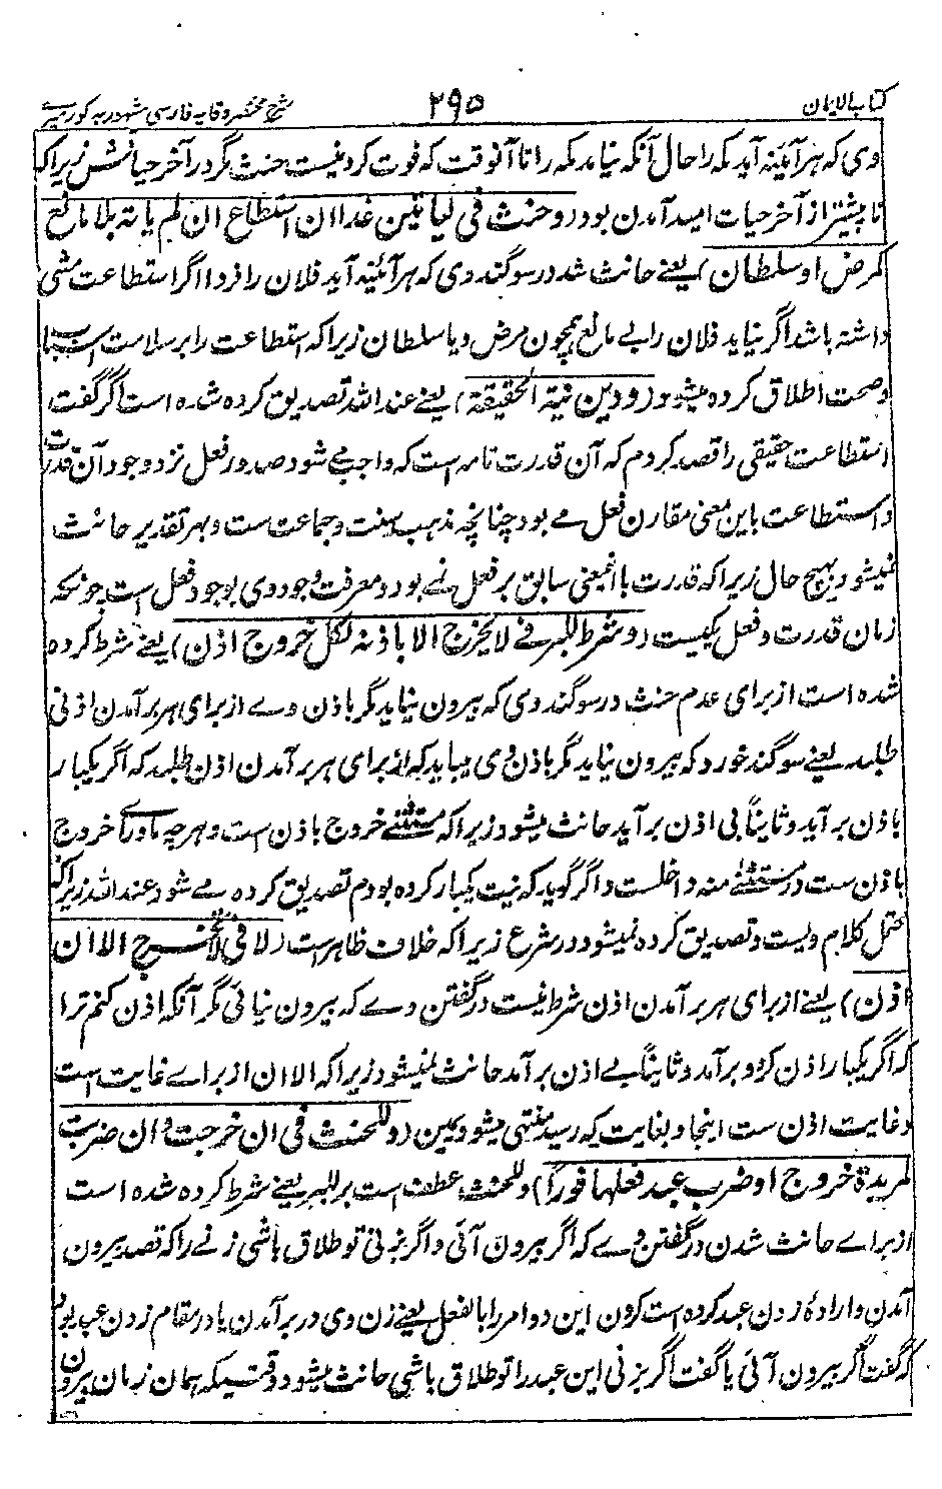 کتاب الایمان ۲۹۵ شرح مختصر وقایه فارسی مشهور به کور میری
وی که هر آئینه آید مکه را حال آنکه نیاید مکه را تا آنوقت که فوت کرد نیست حنث مگر در آخر حیاتش زیراکه
تا پیشتر از آخر حیات امید آمدن بود (و حنث فی لیاتین غدا ان استطاع ان لم یاته بلا مانع
کمرض او سلطان) یعنے حانث شد در سوگند وی که هر آئینه آید فلان را فردا اگر استطاعت مشی
داشته باشد اگر نیاید فلان را بے مانع همچون مرض و یا سلطان زیراکه استطاعت را بر سلامت اسباب
وصحت اطلاق کرده میشود (ودین نیة الحقیقة) یعنے عند الله تصدیق کرده شده است اگر گفت
استطاعت حقیقی را قصد کردم که آن قدرت تامه است که واجب مے شود صدور فعل نزد وجود آن قدرت
و استطاعت باین معنی مقارن فعل مے بود چنانچه مذهب سنت وجماعت ست و بهر تقدیر حانث
نمیشود بهیچ حال زیراکه قدرت با اینمعنی سابق بر فعل نے بود و معرفت وجود وی بوجود فعل است چونکه
زمان قدرت و فعل یکیست (و شرط للبر فے لا یخرج الا باذنه لکل خروج اذن) یعنے شرط کرده
شده است از برای عدم حنث در سوگند وی که بیرون نیاید مگر باذن وے از برای هر بر آمدن اذنی
طلبد یعنے سوگند خورد که بیرون نیاید مگر باذن وی میباید که از برای هر بر آمدن اذن طلبد که اگر یکبار
باذن بر آید و ثانیاً بی اذن بر آید حانث میشود زیراکه مستثنے خروج باذن ست و هرچه ماورای خروج
باذن ست در مستثنے منه داخلست و اگر گوید که نیت یکبار کرده بودم تصدیق کرده مے شود عند الله زیراکه
محتمل کلام ویست و تصدیق کرده نمیشود در شرع زیراکه خلاف ظاهر است (لا فی لا یخرج الا ان
اذن) یعنے از برای هر بر آمدن اذن شرط نیست در گفتن وے که بیرون نیائی مگر آنکه اذن کنم ترا
که اگر یکبار اذن کرد و بر آمد و ثانیاً بے اذن بر آمد حانث نمیشود زیراکه الا ان از براے غایت است
و غایت اذن ست اینجا و بغایت که رسید منتهی میشود یمین (و للحنث فی ان خرجت و ان ضربت
لمریدة خروج او ضرب عبد فعلها فوراً) و للحنث عطف است بر للبر یعنے شرط کرده شده است
از براے حانث شدن در گفتن وے که اگر بیرون آئی و اگر بزنی تو طلاق باشی زنے را که قصد بیرون
آمدن و ارادۀ زدن عبد کرده است کردن این دو امر را بالفعل یعنے زن وی در بر آمدن یا در مقام زدن عبد بود
که گفت اگر بیرون آئی یا گفت اگر بزنی این عبد را تو طلاق باشی حانث میشود وقتیکه همان زمان بیرون